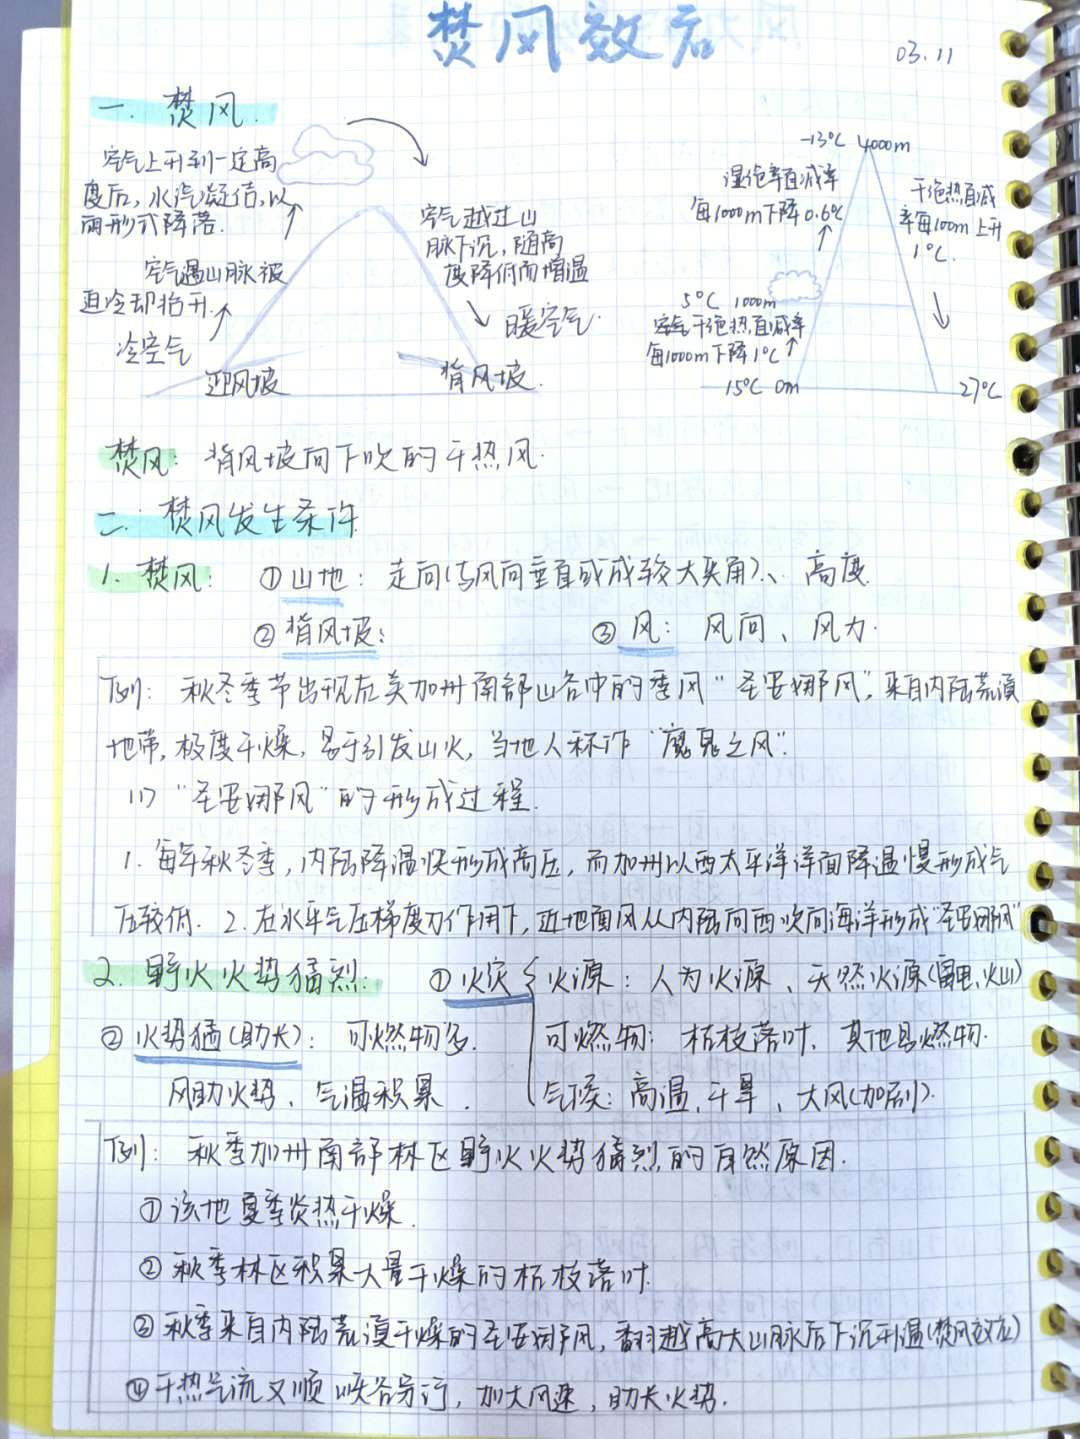 焚风效应
03.11
一. 焚风.
空气上升到一定高
度后,水汽凝结,以
雨形式降落.
空气遇山脉被
迫冷却抬升.
冷空气
迎风坡
空气越过山
脉下沉,随高
度降低而增温
暖空气.
背风坡.
-13℃ 4000m
湿绝率直减率
每1000m下降0.6℃
干绝热直减
率每100m上升
1℃.
5℃ 1000m
空气干绝热直减率
每1000m下降1℃
15℃ 0m
27℃
焚风: 背风坡向下吹的干热风.
二. 焚风发生条件
1. 焚风: ①山地: 走向(与风向垂直或成较大夹角)、高度
②背风坡: ③风: 风向、风力.
例: 秋冬季节出现在美加州南部山谷中的季风“圣安娜风”,来自内陆荒漠
地带,极度干燥,易于引发山火,当地人称作“魔鬼之风”.
(1) “圣安娜风”的形成过程.
1. 每年秋冬季,内陆降温快形成高压,而加州以西太平洋洋面降温慢形成气
压较低. 2. 在水平气压梯度力作用下,近地面风从内陆向西吹向海洋形成“圣安娜风”
2. 野火火势猛烈: ①火灾{火源: 人为火源、天然火源(雷电,火山)
②火势猛(助长): 可燃物多. 可燃物: 枯枝落叶,其他易燃物.
风助火势、气温积累. 气候: 高温,干旱、大风(加剧).
例: 秋季加州南部林区野火火势猛烈的自然原因.
①该地夏季炎热干燥.
②秋季林区积累大量干燥的枯枝落叶.
③秋季来自内陆荒漠干燥的圣安娜风,翻越高大山脉后下沉升温(焚风效应)
④干热气流又顺峡谷穿行,加大风速,助长火势.